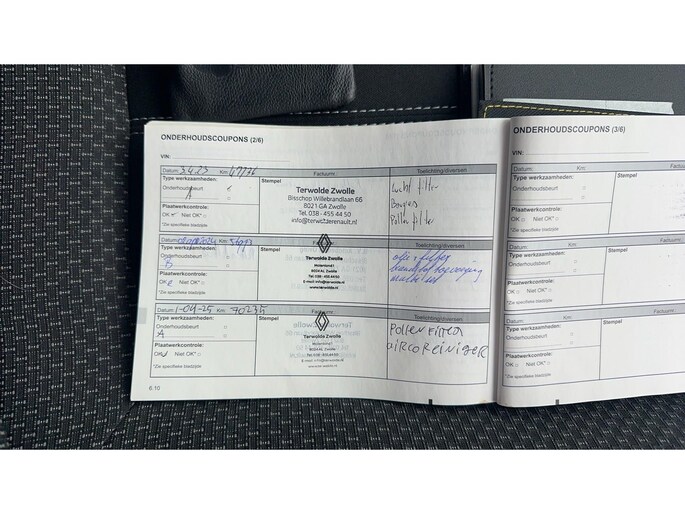 ONDERHOUDSCOUPONS (2/6)
VIN:
Datum: 3.4.23 Km: 47776 Factuurnr.:
Type werkzaamheden: Stempel Toelichting/diversen
Onderhoudsbeurt
A
Plaatwerkcontrole:
OK Niet OK*
*Zie specifieke bladzijde
Terwolde Zwolle
Bisschop Willebrandlaan 66
8021 GA Zwolle
Tel. 038 - 455 44 50
info@terwolderenault.nl
Lucht filter
Bougies
Pollen filter
Datum: Km:
Type werkzaamheden: Stempel Toelichting/diversen
Onderhoudsbeurt
B
Plaatwerkcontrole:
OK Niet OK*
*Zie specifieke bladzijde
Terwolde Zwolle
8024 AL Zwolle
Tel: 038 - 455 44 50
E-mail: info@terwolde.nl
www.terwolde.nl
olie + filter
Datum: 1-04-25 Km: 70235 Factuurnr.:
Type werkzaamheden: Stempel Toelichting/diversen
Onderhoudsbeurt
A
Plaatwerkcontrole:
OK Niet OK*
*Zie specifieke bladzijde
Terwolde Zwolle
8024 AL Zwolle
Tel: 038 - 455 44 50
E-mail: info@terwolde.nl
www.terwolde.nl
Pollen Filter
airco reiniger
6.10
ONDERHOUDSCOUPONS (3/6)
VIN:
Datum: Km:
Type werkzaamheden: Stempel
Onderhoudsbeurt
Plaatwerkcontrole:
OK Niet OK*
*Zie specifieke bladzijde
Datum: Km: Factuurnr.:
Type werkzaamheden: Stempel
Onderhoudsbeurt
Plaatwerkcontrole:
OK Niet OK*
*Zie specifieke bladzijde
Datum: Km: Factuurnr.:
Type werkzaamheden: Stempel
Onderhoudsbeurt
Plaatwerkcontrole:
OK Niet OK*
*Zie specifieke bladzijde